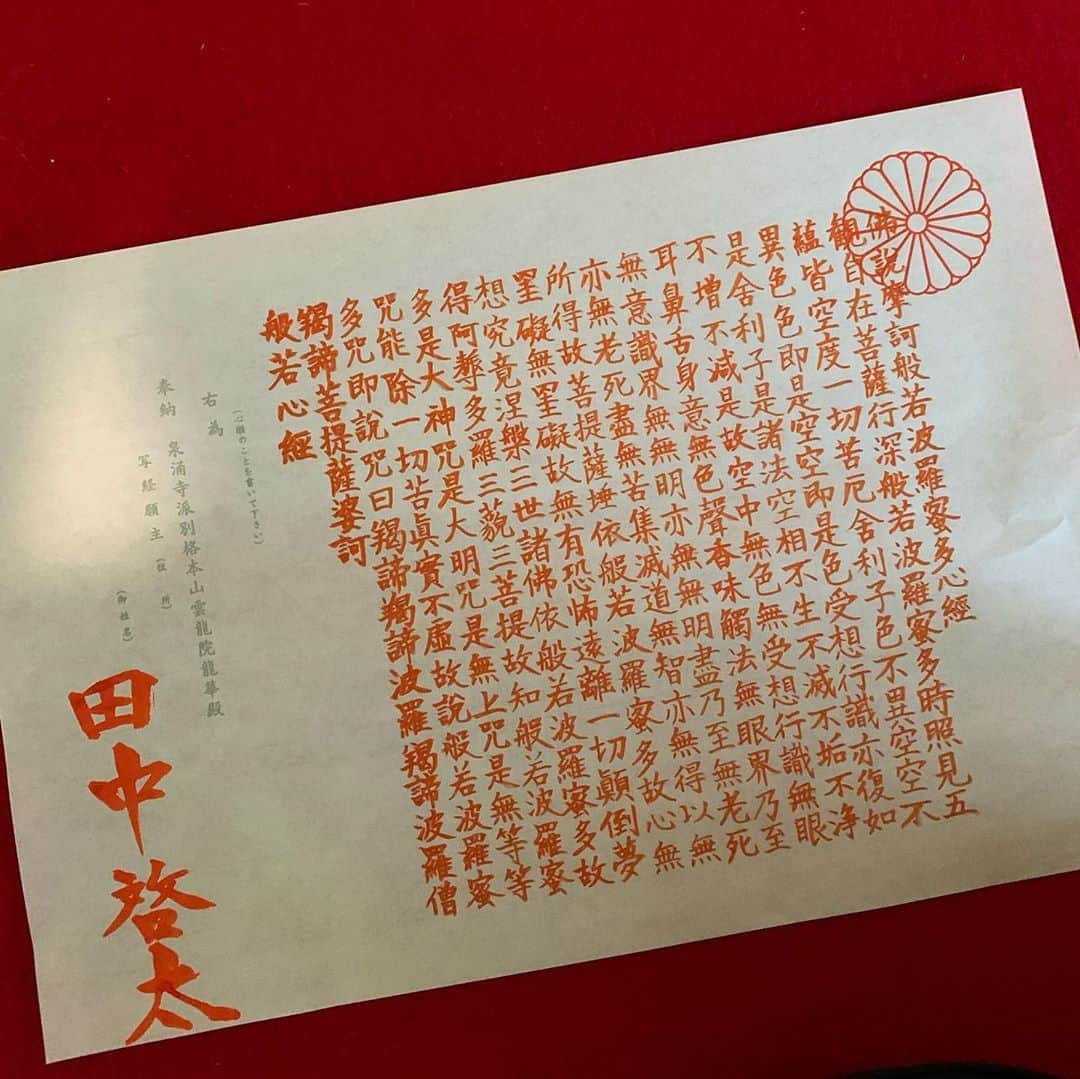 佛說摩訶般若波羅蜜多心經
觀自在菩薩行深般若波羅蜜多時照見五
蘊皆空度一切苦厄舍利子色不異空空不
異色色即是空空即是色受想行識亦復如
是舍利子是諸法空相不生不滅不垢不淨
不增不減是故空中無色無受想行識無眼
耳鼻舌身意無色聲香味觸法無眼界乃至
無意識界無無明亦無無明盡乃至無老死
亦無老死盡無苦集滅道無智亦無得以無
所得故菩提薩埵依般若波羅蜜多故心無
罣礙無罣礙故無有恐怖遠離一切顛倒夢
想究竟涅槃三世諸佛依般若波羅蜜多故
得阿耨多羅三藐三菩提故知般若波羅蜜
多是大神咒是大明咒是無上咒是無等等
咒能除一切苦眞實不虛故說般若波羅蜜
多咒即說咒曰羯諦羯諦波羅羯諦波羅僧
羯諦菩提薩婆訶
般若心經
(心願のことを書いて下さい)
右為
奉納 泉涌寺派別格本山雲龍院龍華殿
写経願主 (住所)
(御姓名)
田中啓太